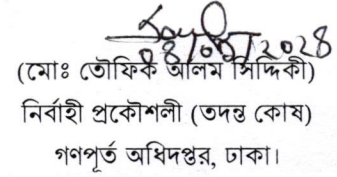 ০৪/০৫/২০২৪
(মোঃ তৌফিক আলম সিদ্দিকী)
নির্বাহী প্রকৌশলী (তদন্ত কোষ)
গণপূর্ত অধিদপ্তর, ঢাকা।